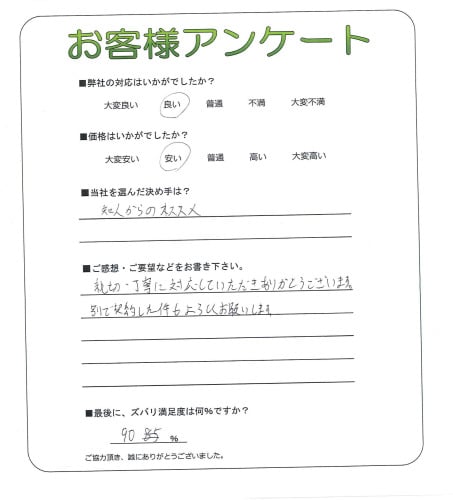 お客様アンケート
■弊社の対応はいかがでしたか？
大変良い 良い 普通 不満 大変不満
■価格はいかがでしたか？
大変安い 安い 普通 高い 大変高い
■当社を選んだ決め手は？
知人からのオススメ
■ご感想・ご要望などをお書き下さい。
親切・丁寧に対応していただきありがとうございます
別で契約した件もよろしくお願いします
■最後に、ズバリ満足度は何%ですか？
90 85 %
ご協力頂き、誠にありがとうございました。